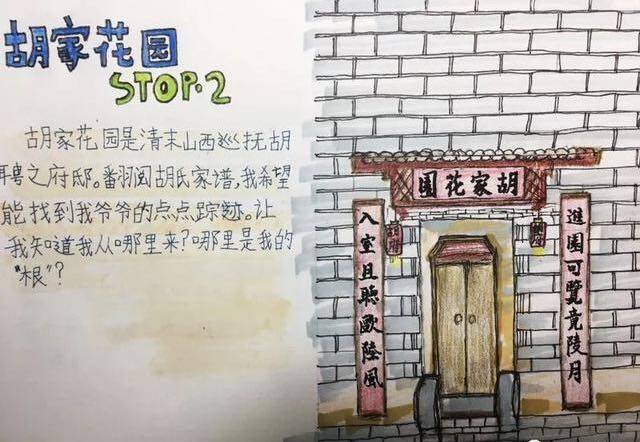 胡家花园
STOP·2
胡家花园是清末山西巡抚胡
聘之府邸。翻阅胡氏家谱,我希望
能找到我爷爷的点点踪迹。让
我知道我从哪里来?哪里是我的
“根”?
胡家花園
進園可覽竟陵月
入室且聽歐陸風